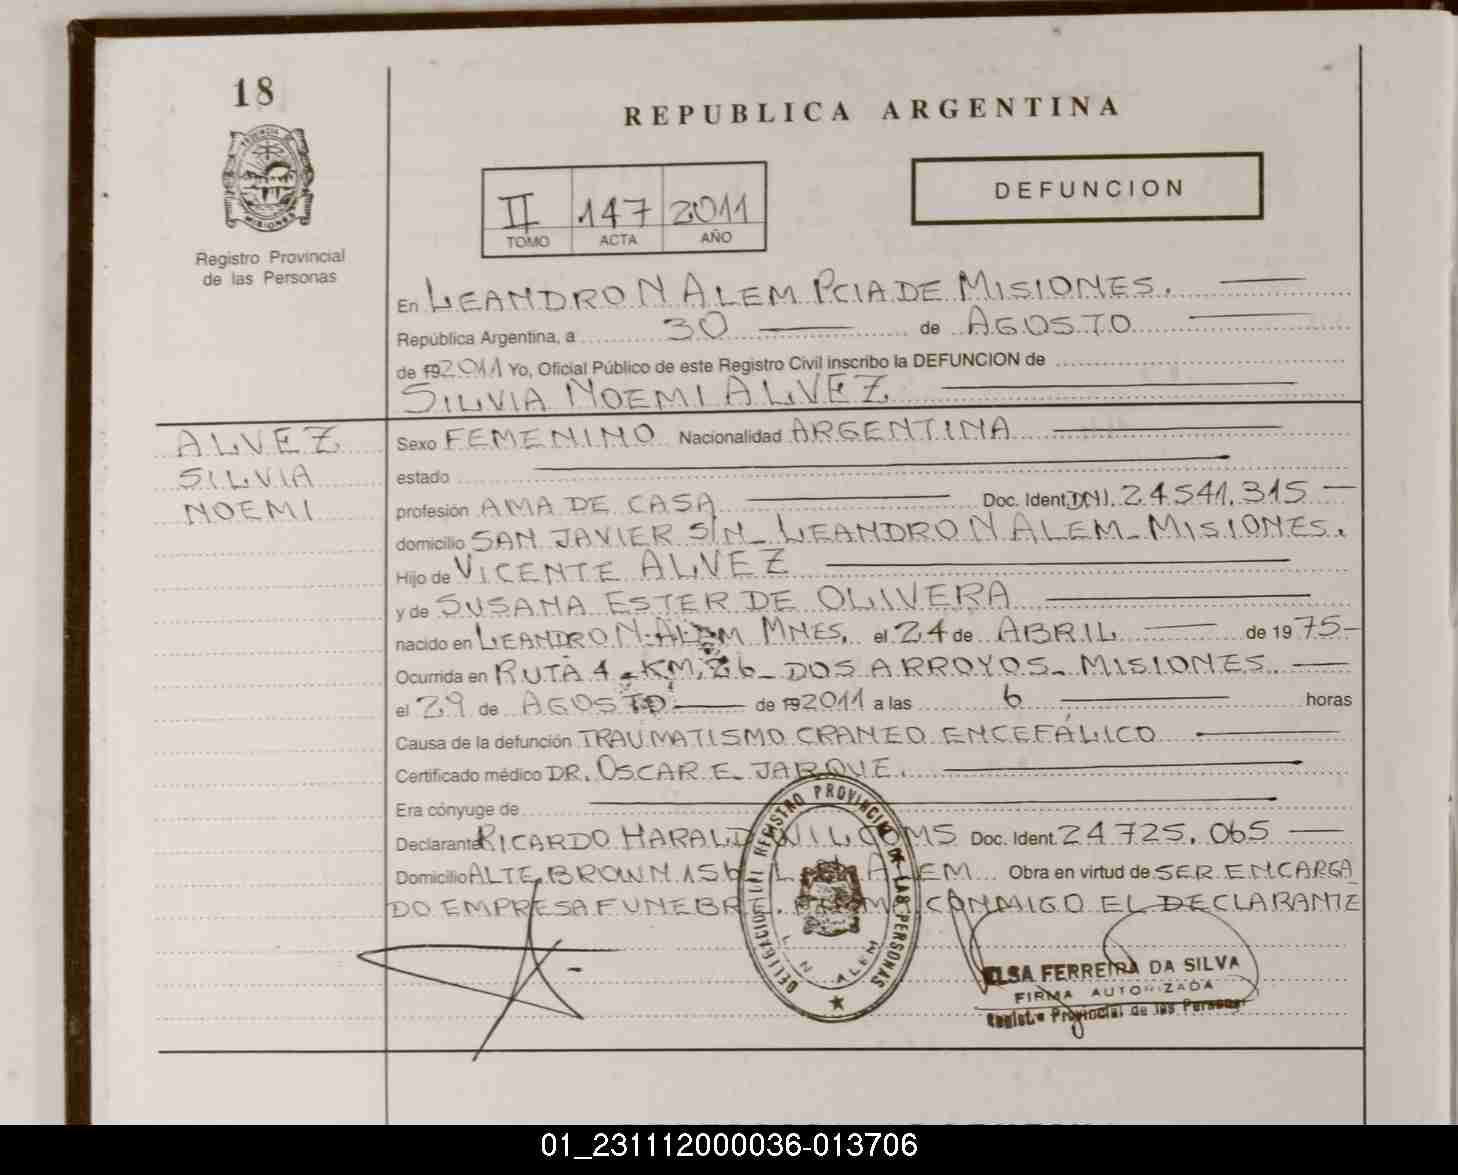 18
REPUBLICA ARGENTINA
MISIONES
Registro Provincial
de las Personas
II 147 2011
TOMO ACTA AÑO
DEFUNCION
En LEANDRO N ALEM PCIA DE MISIONES.
República Argentina, a 30 de AGOSTO
de 192011 Yo, Oficial Público de este Registro Civil inscribo la DEFUNCION de
SILVIA NOEMI ALVEZ
ALVEZ
SILVIA
NOEMI
Sexo FEMENINO Nacionalidad ARGENTINA
estado
profesión AMA DE CASA Doc. Ident. DNI. 24.541.315
domicilio SAN JAVIER S/N_ LEANDRO N ALEM_ MISIONES.
Hijo de VICENTE ALVEZ
y de SUSANA ESTER DE OLIVERA
nacido en LEANDRO N. ALEM MNES. el 24 de ABRIL de 1975-
Ocurrida en RUTA 4 - KM, 26_ DOS ARROYOS_ MISIONES.
el 29 de AGOSTO de 192011 a las 6 horas
Causa de la defunción TRAUMATISMO CRANEO ENCEFÁLICO
Certificado médico DR. OSCAR E. JARQUE.
Era cónyuge de
Declarante RICARDO HARALD WILCOMS Doc. Ident. 24.725.065
Domicilio ALTE. BROWN 156 L. ALEM Obra en virtud de SER ENCARGA
DO EMPRESA FUNEBRE. FIRMA CONMIGO EL DECLARANTE
DELEGACION DEL REGISTRO PROVINCIAL DE LAS PERSONAS
L. N. ALEM
ELSA FERREIRA DA SILVA
FIRMA AUTORIZADA
Registro Provincial de las Personas
01_231112000036-013706